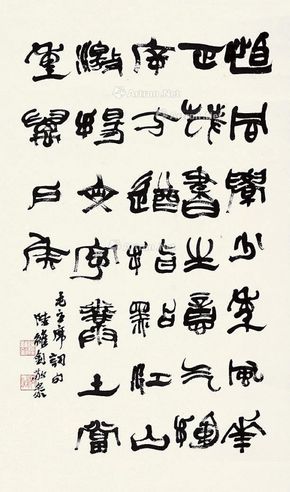 恰同學少年風華
正茂書生意气揮
斥方遒指點江山
激揚文字糞土當
年萬户侯
毛主席詞句
陸維釗
Artron.Net